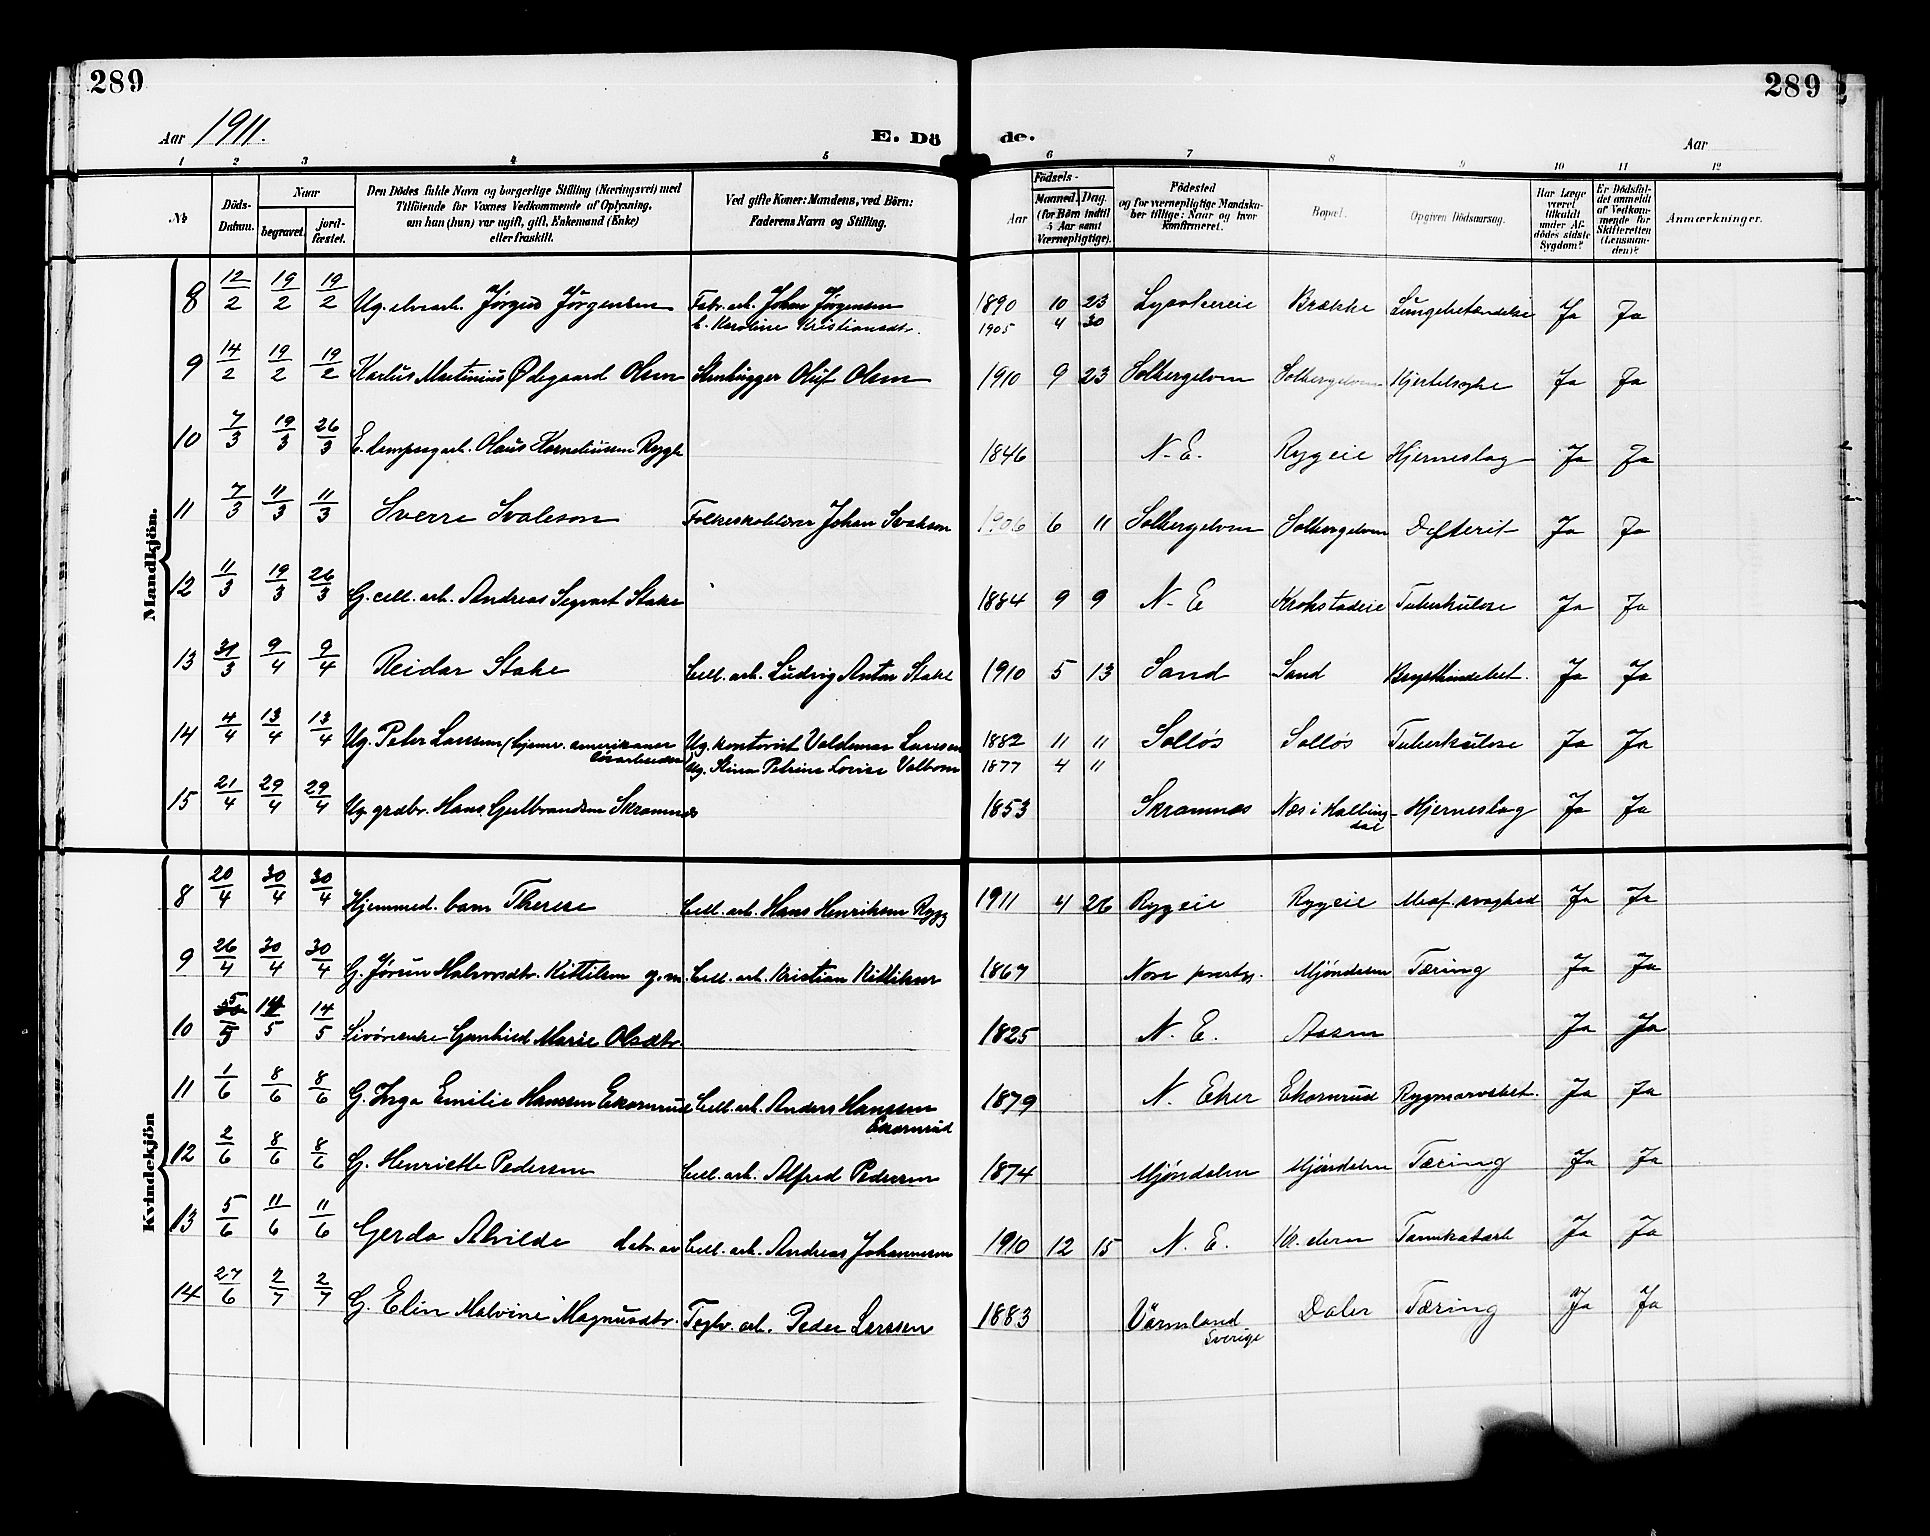 289
289
Aar 1911.
E. Dö
de.
Aar
1 2 3 4 5 6 7 8 9 10 11 12
No
Döds-Datum.
Naar
begravet.
jord-fæstet.
Den Dödes fulde Navn og borgerlige Stilling (Næringsvei) med
Tilföiende for Voxnes Vedkommende af Oplysning,
om han (hun) var ugift, gift, Enkemand (Enke)
eller fraskilt.
Ved gifte Koner: Mandens, ved Börn:
Faderens Navn og Stilling.
Födsels-
Aar
Maaned. Dag.
(for Börn indtil
5 Aar samt
Værnepligtige).
Födested
og for værnepligtige Mandska-
ber tillige: Naar og hvor
konfirmeret.
Bopæl.
Opgiven Dödsaarsag.
Har Læge
været
tilkaldt
under Af-
dödes sidste
Sygdom?
Er Dödsfal-
det anmeldt
af Vedkom-
mende for
Skifteretten
(Lensman-
den)?
Anmærkninger.
Mandkjön.
8 12/2 19/2 19/2 Ug. elvearb. Jørgen Jørgensen Fabr. arb. Johan Jørgensen 1890 10 23 Brække Lungebetændelse Ja Ja
Karoline Kristiansdtr. 1905 4 30
9 14/2 19/2 19/2 Karlus Martinius Ødegaard Olsen Stenhugger Oluf Olsen 1910 9 23 Solbergelven Solbergelven Kjertelsyke Ja Ja
10 7/3 19/3 26/3 Olaus Korneliusen Rygh 1846 N. E. Rygeie Hjerneslag Ja Ja
11 7/3 11/3 11/3 Sverre Svaleson Folkeskolelærer Johan Svaleson 1906 6 11 Solbergelven Solbergelven Difterit Ja Ja
12 11/3 19/3 26/3 G. cell. arb. Andreas Segvart Stake 1884 9 9 N. E Krokstadeie Tuberkulose Ja Ja
13 31/3 9/4 9/4 Reidar Stake Cell. arb. Ludvig Anton Stake 1910 5 13 Sand Sand Ja Ja
14 4/4 13/4 13/4 Ug. Peter Larssen (hjemv. amerikaner Ug. kontorist Valdemar Larssen 1882 11 11 Solløs Solløs Tuberkulose Ja Ja
løsarbeider Ug. Stina Petrine Lovise Valbom 1877 4 11
15 21/4 29/4 29/4 Ug. grdbr. Hans Gulbrandsen Skramnes 1853 Skramnes Næs i Halling-
dal Hjerneslag Ja Ja
Kvindekjön
8 20/4 30/4 30/4 Hjemmed. barn Therese Cell. arb. Hans Henriksen Rygg 1911 4 26 Rygeie Rygeie Medf. svaghed Ja Ja
9 26/4 30/4 30/4 G. Jørun Halvorsdtr. Kittilsen g. m. Cell. arb. Kristian Kittilsen 1867 Nore prestgj. Mjøndalen Tæring Ja Ja
10 5/5 14/5 14/5 Gunhild Marie Olsdtr. 1825 N. E. Aasen Ja Ja
11 1/6 8/6 8/6 G. Inga Emilie Hanssen Ekornrud Cell. arb. Anders Hanssen 1879 N. Eker Ekornrud Rygmarvsbet. Ja Ja
Ekornrud
12 2/6 8/6 8/6 G. Henriette Pedersen Cell. arb. Alfred Pedersen 1874 Mjøndalen Mjøndalen Tæring Ja Ja
13 5/6 11/6 11/6 Gerda Alvilde datr. av Cell. arb. Andreas Johannessen 1910 12 15 N. E. Kr. elven Tarmkatarh Ja Ja
14 27/6 2/7 2/7 G. Elin Malvine Magnusdtr. Teglv. arb. Peder Larssen 1883 Värmland Daler Tæring Ja Ja
Sverige